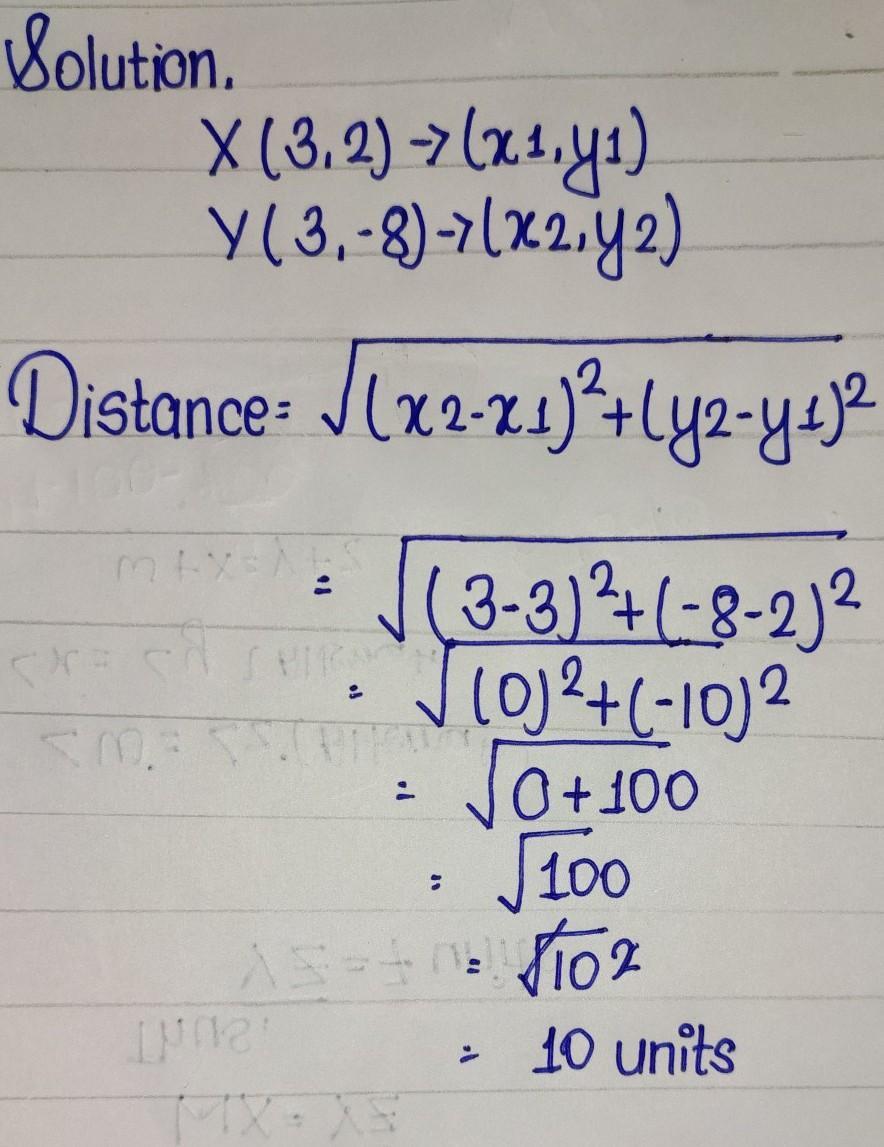 Solution.
X(3,2)→(x1,y1)
Y(3,-8)→(x2,y2)
Distance= √(x2-x1)²+(y2-y1)²
= √(3-3)²+(-8-2)²
= √(0)²+(-10)²
= √0+100
= √100
= √10²
= 10 units